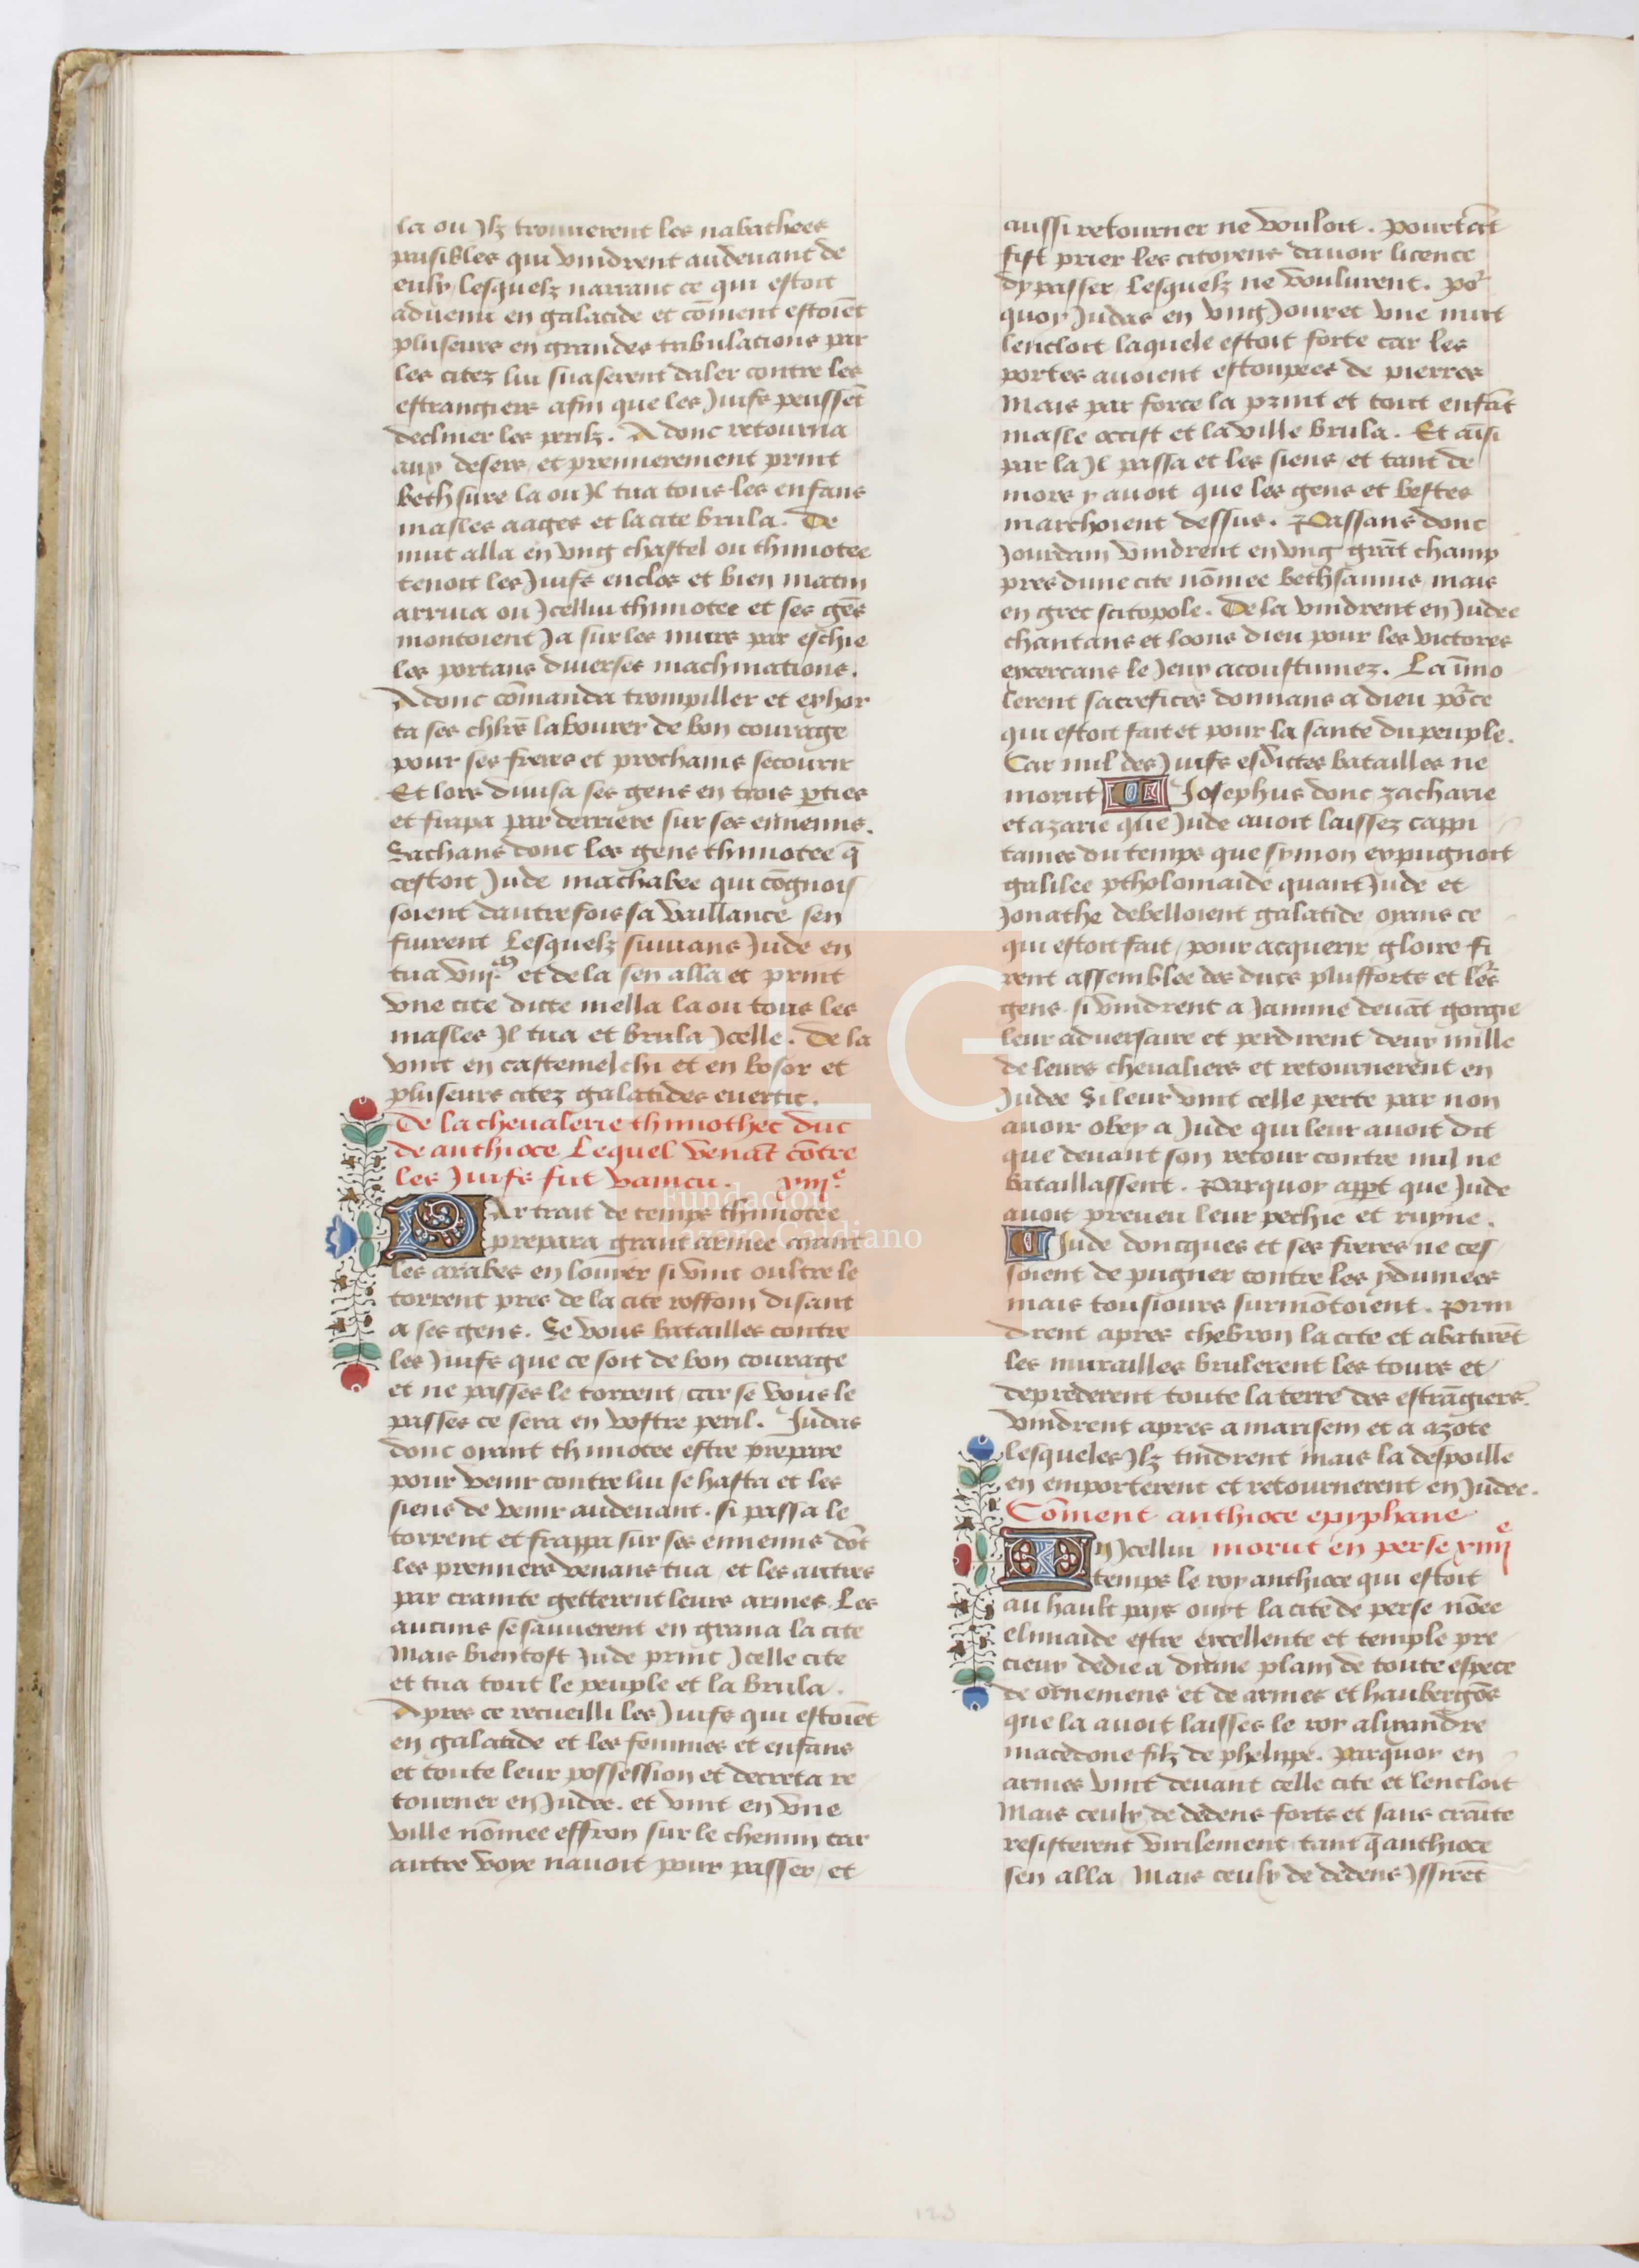 la ou Jlz trouuerent les nabathees
paisibles qui vindrent audeuant de
eulx lesquelz narrant ce qui estoit
aduenu en galatide et cōment estoiēt
pluseurs en grandes tribulacions par
les citez lui suaserent daler contre les
estrangiers afin que les Juifs peussēt
decliner les perilz. Adonc retourna
aux desers et premierement print
bethsure la ou Jl tua tous les enfans
masles aages et la cite brula. De
nuit alla en vng chastel ou thimotee
tenoit les Juifs enclos et bien matin
arriua ou Jcellui thimotee et ses gēs
montoient Ja sur les murs par eschie
les portans diuerses machinations.
Adonc cōmanda trompiller et exhor
ta ses chlrs labourer de bon courage
pour ses freres et prochains secourir
Et lors diuisa ses gens en trois pties
et frapa par derriere sur ses ennemis.
Sachans donc les gens thimotee q̄
cestoit Jude machabee qui cōgnois
soient dautrefois sa vaillance sen
fuirent Lesquelz suiuans Jude en
tua viij.m et de la sen alla et print
vne cite dicte mella la ou tous les
masles Jl tua et brula Jcelle. De la
vint en castemelchi et en bosor et
pluseurs citez galatides euertit.
De la cheualerie thimothee duc
de anthioce Lequel venāt cōtre
les Juifs fut vaincu. xiij.e
PAr trait de temps thimotee
prepara grant armee aiant
les arabes en louier si vint oultre le
torrent pres de la cite roffom disant
a ses gens. Se vous batailles contre
les Juifs que ce soit de bon courage
et ne passes le torrent car se vous le
passes ce sera en vostre peril. Judas
donc oyant thimotee estre prepare
pour venir contre lui se hasta et les
siens de venir audeuant. si passa le
torrent et frappa sur ses ennemis dōt
les premiers venans tua et les autres
par crainte getterent leurs armes. Les
aucuns se sauuerent en grana la cite
Mais bientost Jude print Jcelle cite
et tua tout le peuple et la brula.
Apres ce recueilli les Juifs qui estoiēt
en galatide et les femmes et enfans
et toute leur possession et decreta re
tourner en Judee. et vint en vne
ville nōmee effron sur le chemin car
autre voye nauoit pour passer et
aussi retourner ne vouloit. Pourtāt
fist prier les citoyens dauoir licence
dy passer Lesquelz ne voulurent. Por
quoy Judas en vng Jour et vne nuit
lencloit laquele estoit forte car les
portes auoient estoupees de pierres
Mais par force la print et tout enfāt
masle occist et la ville brula. Et aīsi
par la Jl passa et les siens et tant de
mors y auoit que les gens et bestes
marchoient dessus. Passans donc
Jourdain vindrent en vng grāt champ
pres dune cite nōmee bethsanus mais
en grec scitopole. De la vindrent en Judee
chantans et loons dieu pour les victores
excercans le Jeux acoustumez. La ī̄mo
lerent sacrefices donnans a dieu pōce
qui estoit fait et pour la sante du peuple.
Car nul des Juifs esdictes batailles ne
morut Josephus donc zacharie
et azarie que Jude auoit laissez cappi
taines du temps que symon expugnoit
galilee ptholomaide quant Jude et
Jonathe debelloient galatide oyans ce
qui estoit fait pour acquerir gloire fi
rent assemblee des ducs plusforts et lers
gens. si vindrent a Jamme deuāt gorgie
leur aduersaire et perdirent deux mille
de leurs cheualiers et retournerent en
Judee Si leur vint celle perte par non
auoir obey a Jude qui leur auoit dit
que deuant son retour contre nul ne
bataillassent. Parquoy appt que Jude
auoit preueu leur pechie et ruyne.
Jude doncques et ses freres ne ces
soient de pugner contre les ydumees
mais tousiours surmōtoient. Prin
drent apres chebron la cite et abatirēt
les murailles brulerent les tours et
deprederent toute la terre des estrāgiers.
vindrent apres a marisem et a azote
lesqueles Jlz tindrent mais la despoille
en emporterent et retournerent en Judee.
Cōment anthioce epyphane
EN Jcellui morut en perse xiiije
temps le roy anthioce qui estoit
au hault pays ouyt la cite de perse nōee
elimaide estre excellente et temple pre
cieux dedie a dyane plain de toute espece
de ornemens et de armes et haubergōs
que la auoit laisses le roy alixandre
macedone filz de phelippe. Parquoy en
armes vint deuant celle cite et lencloit
Mais ceulx de dedens forts et sans crāite
resisterent virilement tant q̄ anthioce
sen alla Mais ceulx de dedens Jssirēt
LG
Fundación
Lázaro Galdiano
123